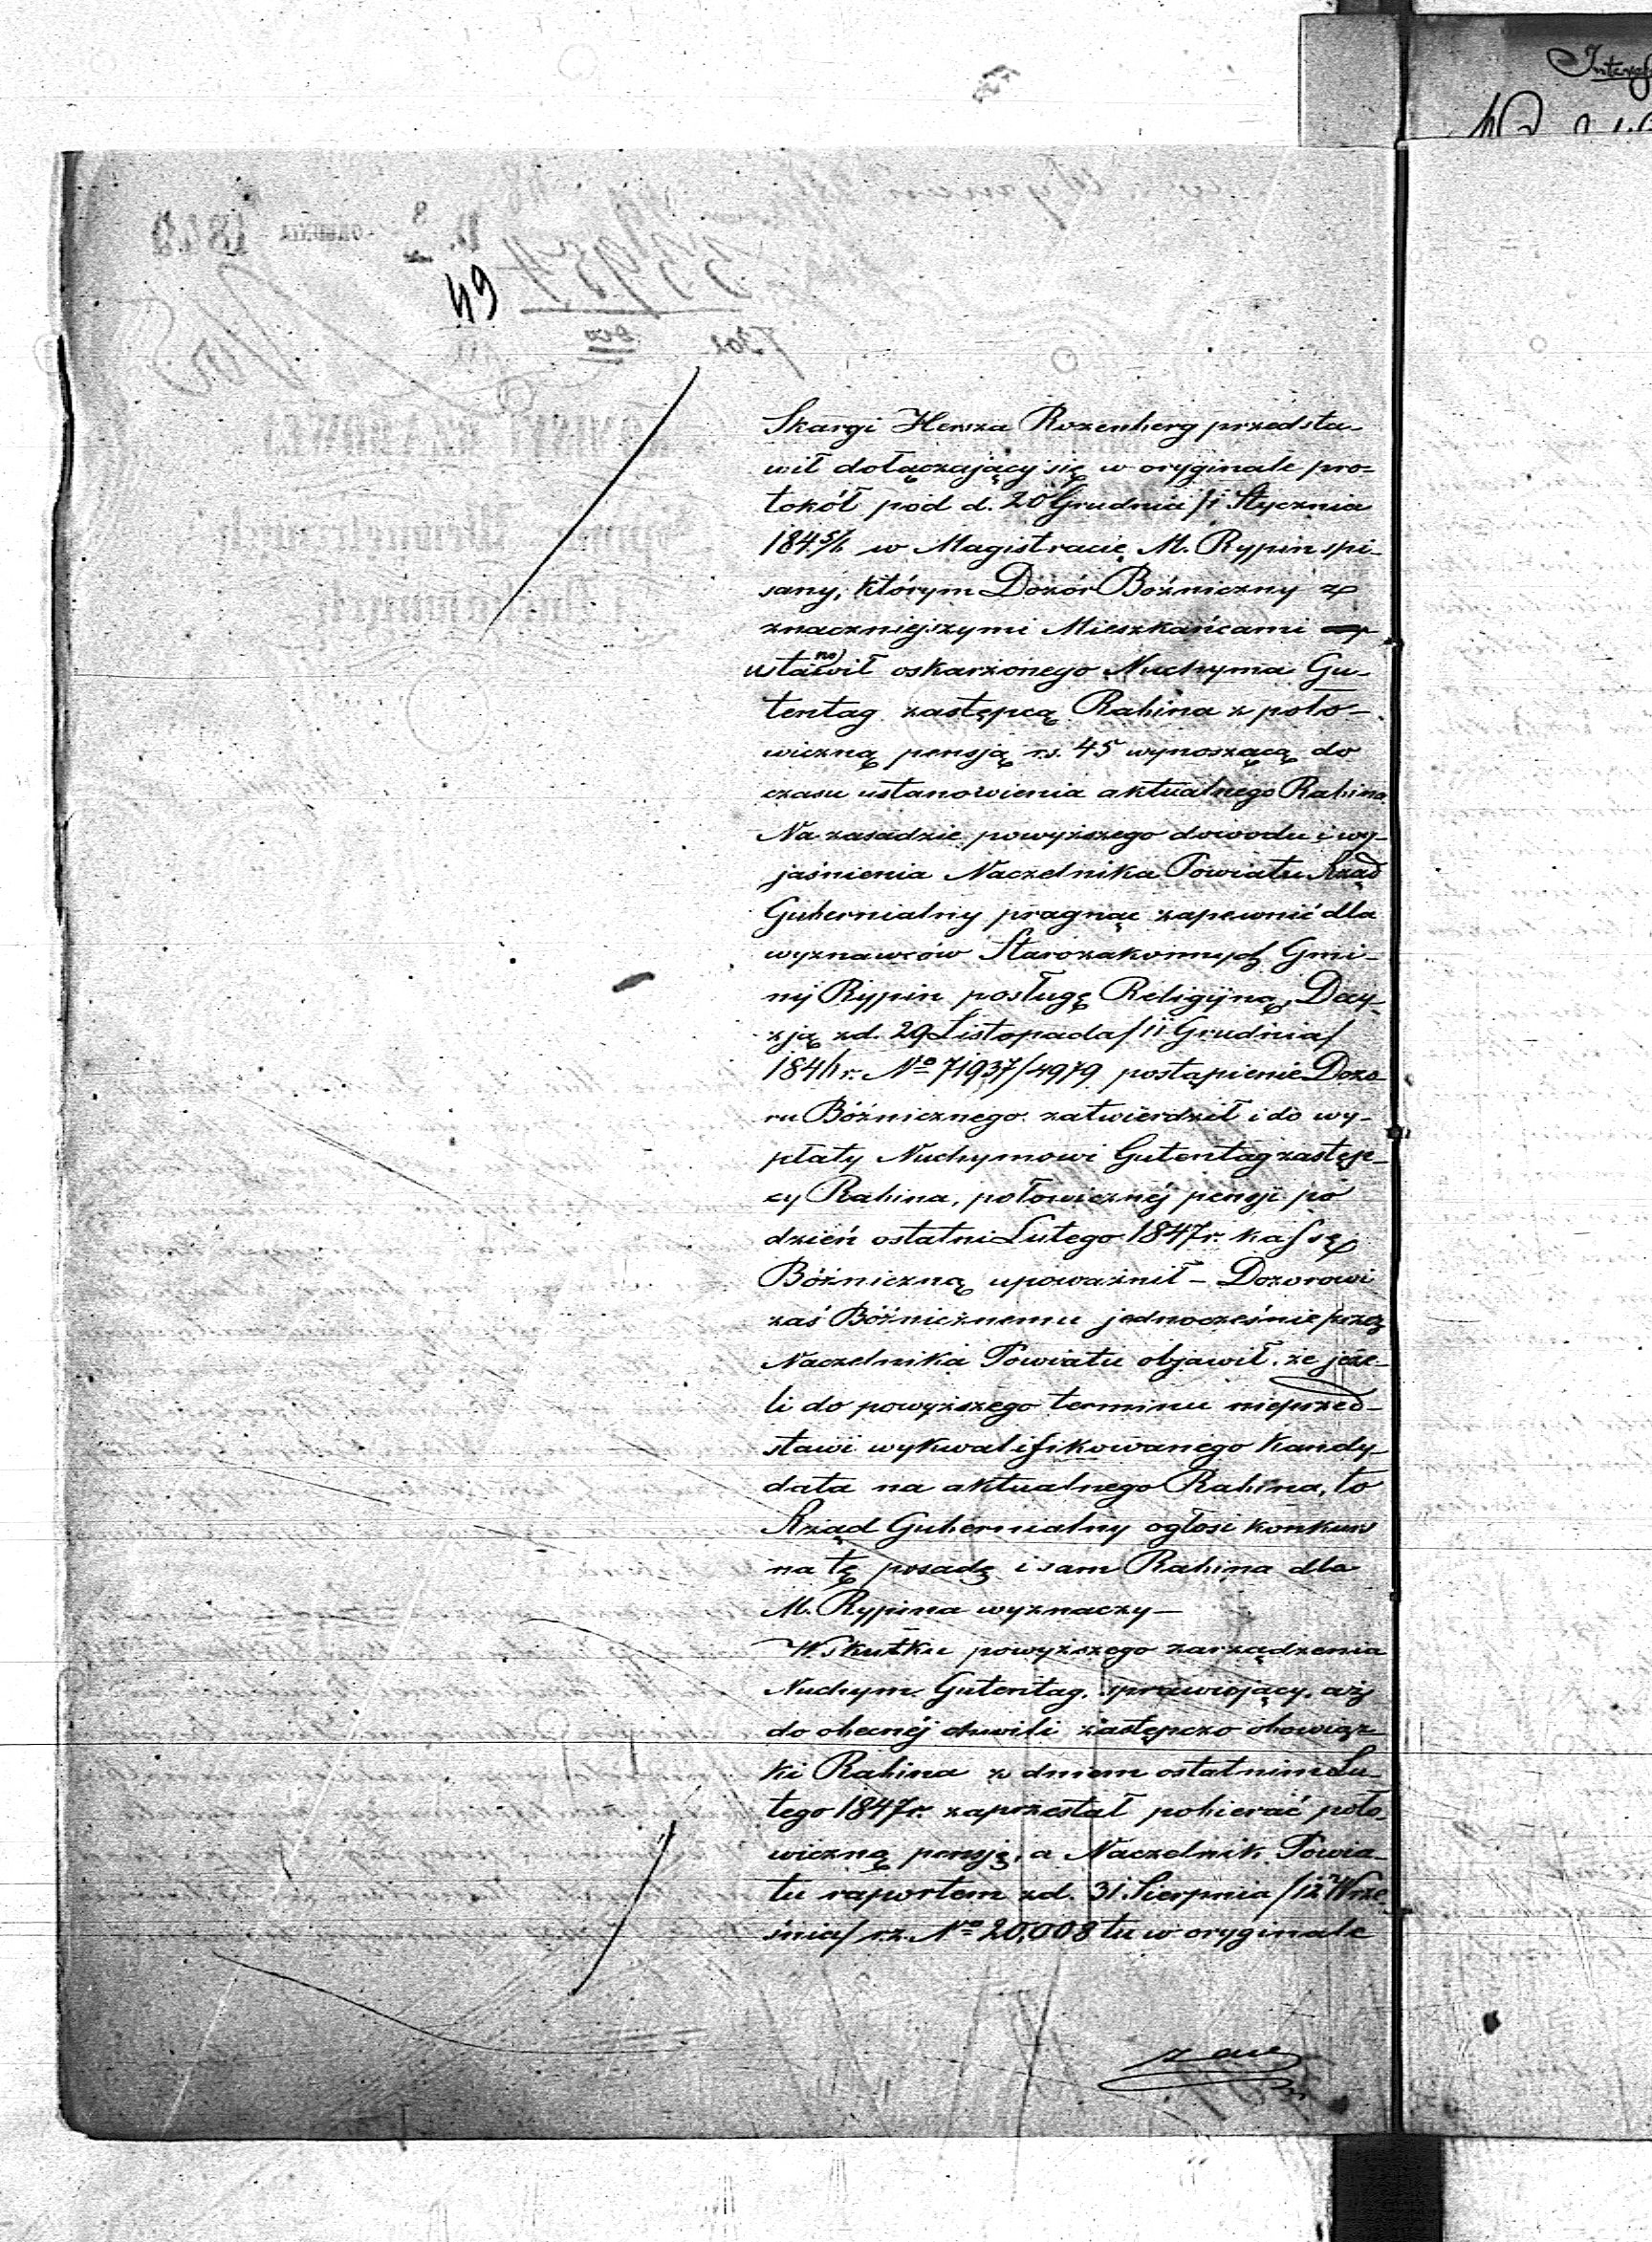 49
Skargi Hersza Rozenberg przedsta-
wił dołączający się w oryginale pro-
tokół pod d. 20 Grudnia / 1 Stycznia
1845/6 w Magistracie M. Rypin spi-
sany, którym Dozór Bóżniczny z
znaczniejszymi Mieszkańcami
ustanowił oskarżonego Nuchyma Gu-
tentag zastępcą Rabina z poło-
wiczną pensją rs. 45 wynoszącą do
czasu ustanowienia aktualnego Rabina
Na zasadzie powyższego dowodu i wy-
jaśnienia Naczelnika Powiatu Rząd
Gubernialny pragnąc zapewnić dla
wyznawców Starozakonnych Gmi-
ny Rypin posługę Religijną, Decy-
zją z d. 29 Listopada / 11 Grudnia /
1846 r. No 71937/4979 postąpienie Dozo-
ru Bóżnicznego zatwierdził i do wy-
płaty Nuchymowi Gutentag zastęp-
cy Rabina, połowicznéj pensji po
dzień ostatni Lutego 1847 r. kassę
Bóżniczną upoważnił – Dozorowi
zaś Bóżnicznemu jednocześnie przez
Naczelnika Powiatu objawił, że jeże-
li do powyższego terminu nieprzed-
stawi wykwalifikowanego Kandy-
data na aktualnego Rabina, to
Rząd Gubernialny ogłosi konkurs
na tę posadę i sam Rabina dla
M. Rypina wyznaczy –
W skutku powyższego zarządzenia
Nuchym Gutentag, sprawiający aż
do obecnéj chwili zastępczo obowiąz-
ki Rabina z dniem ostatnim Lu-
tego 1847 r. zaprzestał pobierać poło-
wiczną pensję, a Naczelnik Powia-
tu raportem z d. 31 Sierpnia / 12 Wrze
śnia / r.z. No 20,008 tu w oryginale